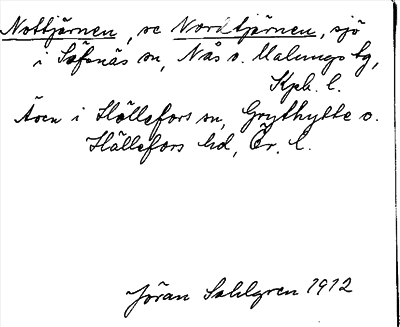 Nottjärnen, se Nordtjärnen, sjö
i Säfsnäs sn, Nås o. Malungs tg,
Kpb. l.
Även i Hällefors sn, Grythytte o.
Hällefors bd, Ör. l.
Jöran Sahlgren 1912